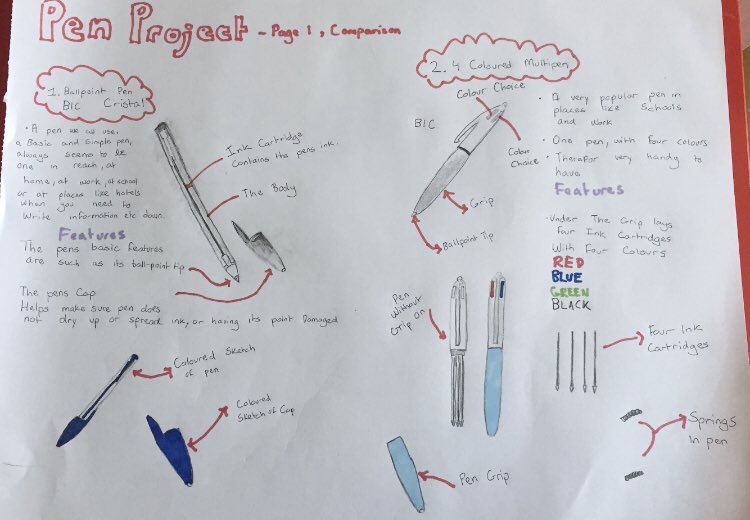 Pen Project - Page 1, Comparison
1. Ballpoint Pen
BIC Cristal
• A pen we all use,
a Basic and Simple pen,
always seems to be
one in reach, at
home, at work, at school
or at places like hotels
when you need to
write information etc down.
Features
The pens basic features
are such as its ball-point tip
The pens Cap
Helps make sure pen does
not dry up or spread ink, or having its point Damaged
Ink Cartridge
Contains the pens ink.
The Body
Coloured Sketch
of pen
Coloured
Sketch of Cap
2. 4 Coloured Multipen
Colour Choice
BIC
Colour
Choice
Grip
Ballpoint Tip
• A very popular pen in
places like Schools
and work
• One pen, with four colours
• Therefor very handy to
have
Features
• Under The Grip lays
four Ink Cartridges
With Four Colours
RED
BLUE
GREEN
BLACK
Pen
Without
Grip On
Four Ink
Cartridges
Pen Grip
Springs
In pen